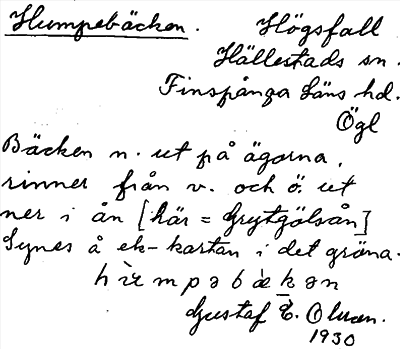 Humpebäcken. Högsfall
Hällestads sn.
Finspånga läns hd.
Ögl
Bäcken n. ut på ägorna,
rinner från v. och ö. ut
ner i ån [här = Grytgölsån]
Synes å ek-kartan i det gröna.
hu̇mpəbäkən
Gustaf E. Olsson.
1930